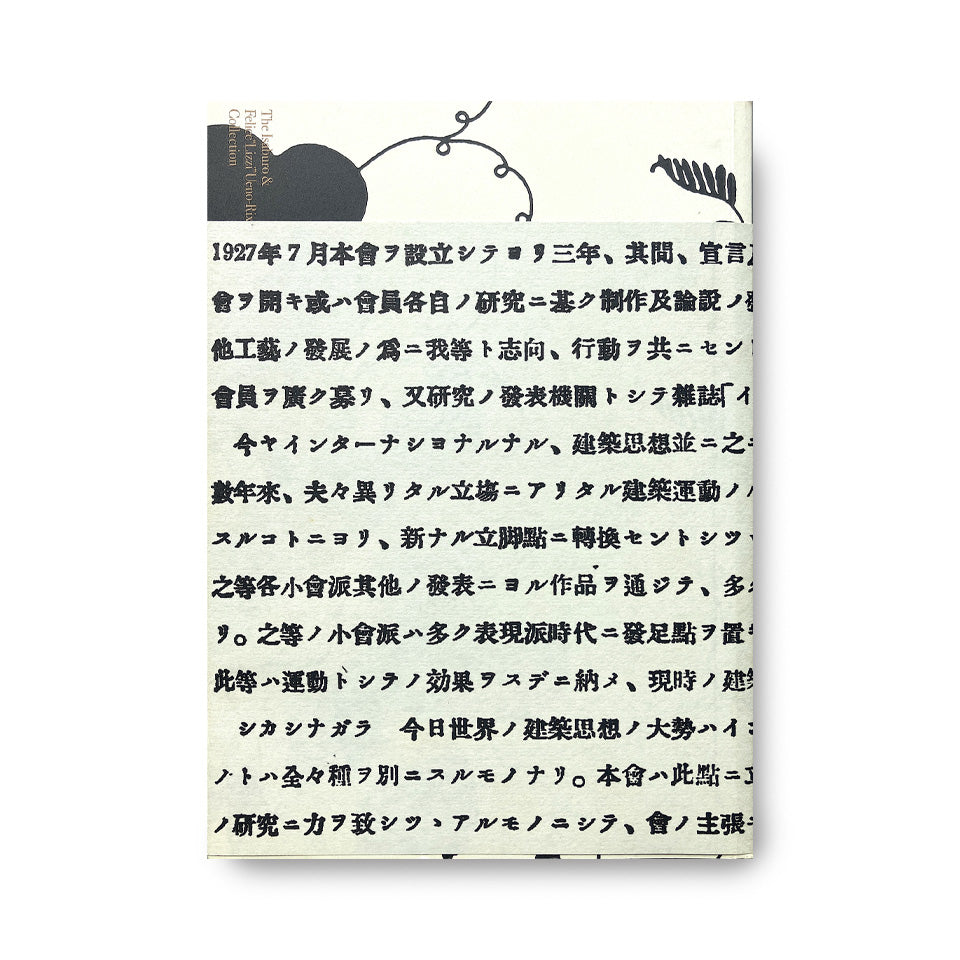 The Isaburo &
Felice "Lizzi" Ueno-Rix
Collection
1927年7月本會ヲ設立シテヨリ三年、其間、宣言
會ヲ開キ或ハ會員各自ノ研究ニ基ク制作及論説ノ發
他工藝ノ發展ノ爲ニ我等ト志向、行動ヲ共ニセン
會員ヲ廣ク募リ、又研究ノ發表機關トシテ雜誌「イ
今ヤインターナシヨナルナル、建築思想並ニ之ニ
數年來、夫々異リタル立塲ニアリタル建築運動ノ
スルコトニヨリ、新ナル立脚點ニ轉換セントシツ
之等各小會派其他ノ發表ニヨル作品ヲ通ジテ、多
リ。之等ノ小會派ハ多ク表現派時代ニ發足點ヲ置キ
此等ハ運動トシテノ効果ヲスデニ納メ、現時ノ建築
シカシナガラ 今日世界ノ建築思想ノ大勢ハイ
ノトハ全々種ヲ別ニスルモノナリ。本會ハ此點ニ立
ノ研究ニ力ヲ致シツヽアルモノニシテ、會ノ主張ニ